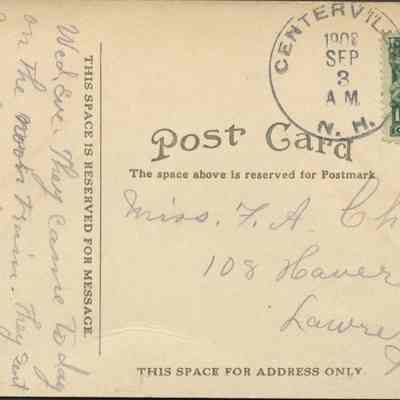 CENTERVIL
1908
SEP
3
A M.
N. H.
Post Card
The space above is reserved for Postmark
THIS SPACE IS RESERVED FOR MESSAGE
Wed. Eve. They came to day
on the noon train. They sent
Miss. F. A. Ch
108 Haver
Lawre
THIS SPACE FOR ADDRESS ONLY.